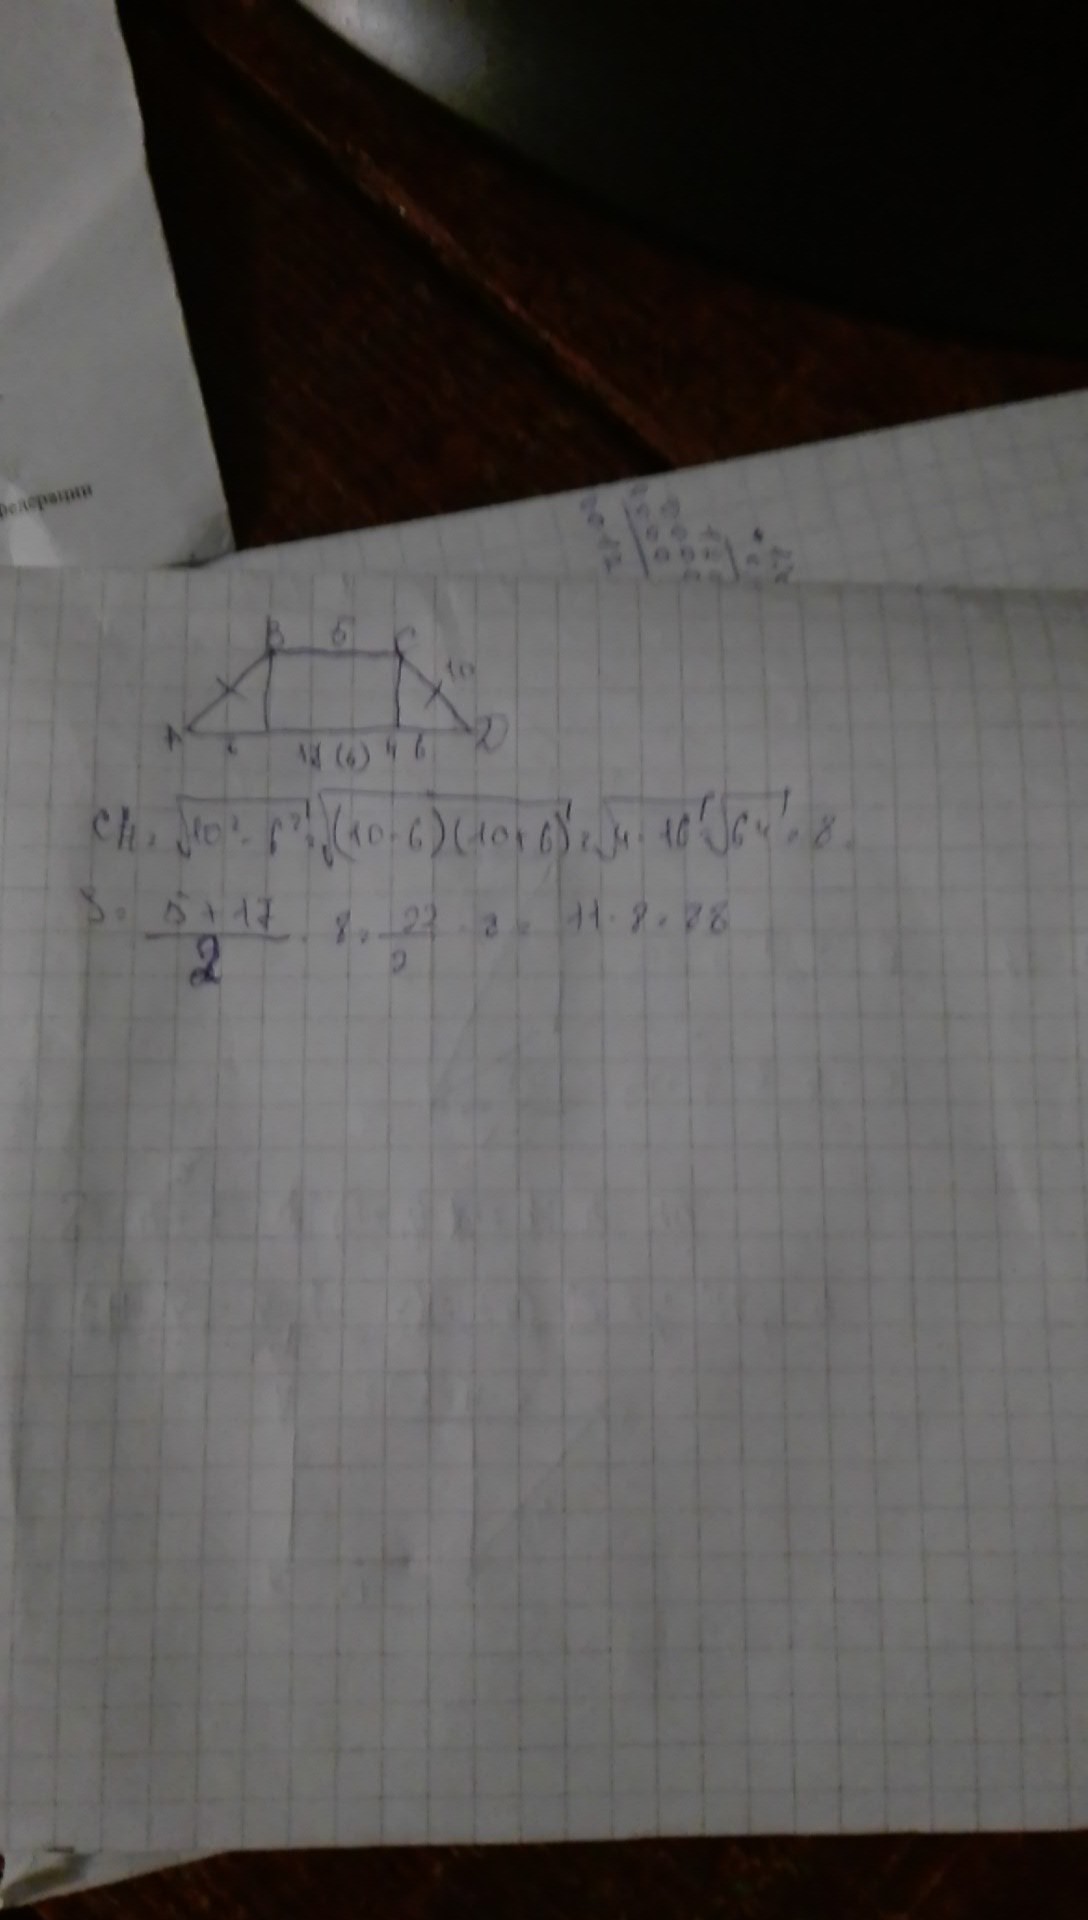 федерации
B 5 C
10
A 17 (5) H 6 D
CH = √10² - 6² = √(10 - 6)(10 + 6) = √4 · 16 = √64 = 8.
S = 5 + 17 / 2 · 8 = 22 / 2 · 8 = 11 · 8 = 88